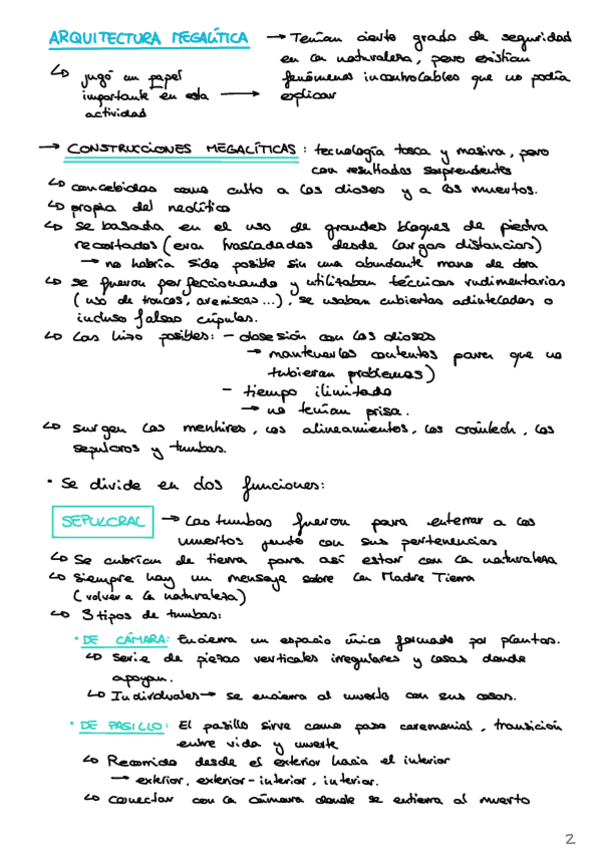 ARQUITECTURA MEGALÍTICA → Tenían cierto grado de seguridad
en la naturaleza, pero existían
↳ jugó un papel fenómenos incontrolables que no podía
importante en esta → explicar
actividad
→ CONSTRUCCIONES MEGALÍTICAS: tecnología tosca y masiva, pero
con resultados sorprendentes
↳ concebidas como culto a los dioses y a los muertos.
↳ propia del neolítico
↳ se basada en el uso de grandes bloques de piedra
recortados (eran trasladadas desde largas distancias)
→ no habría sido posible sin una abundante mano de obra
↳ se fueron perfeccionando y utilizaban técnicas rudimentarias
(uso de troncos, areniscas...), se usaban cubiertas adinteladas o
incluso falsas cúpulas.
↳ Las hizo posibles: - obsesión con los dioses
→ mantenerlos contentos para que no
tubieran problemas)
- tiempo ilimitado
→ no tenían prisa.
↳ surgen los menhires, los alineamientos, los cromlech, los
sepulcros y tumbas.
• Se divide en dos funciones:
SEPULCRAL → Las tumbas fueron para enterrar a los
muertos junto con sus pertenencias
↳ Se cubrían de tierra para así estar con la naturaleza
↳ Siempre hay un mensaje sobre la Madre Tierra
(volver a la naturaleza)
↳ 3 tipos de tumbas:
• DE CÁMARA: Encierra un espacio único formado por plantas.
↳ Serie de piezas verticales irregulares y losas donde
apoyan.
↳ Individuales → se encierra al muerto con sus cosas.
• DE PASILLO: El pasillo sirve como paso ceremonial, transición
entre vida y muerte
↳ Recorrido desde el exterior hacia el interior
→ exterior, exterior-interior, interior.
↳ conectar con la cámara donde se entierra al muerto
2